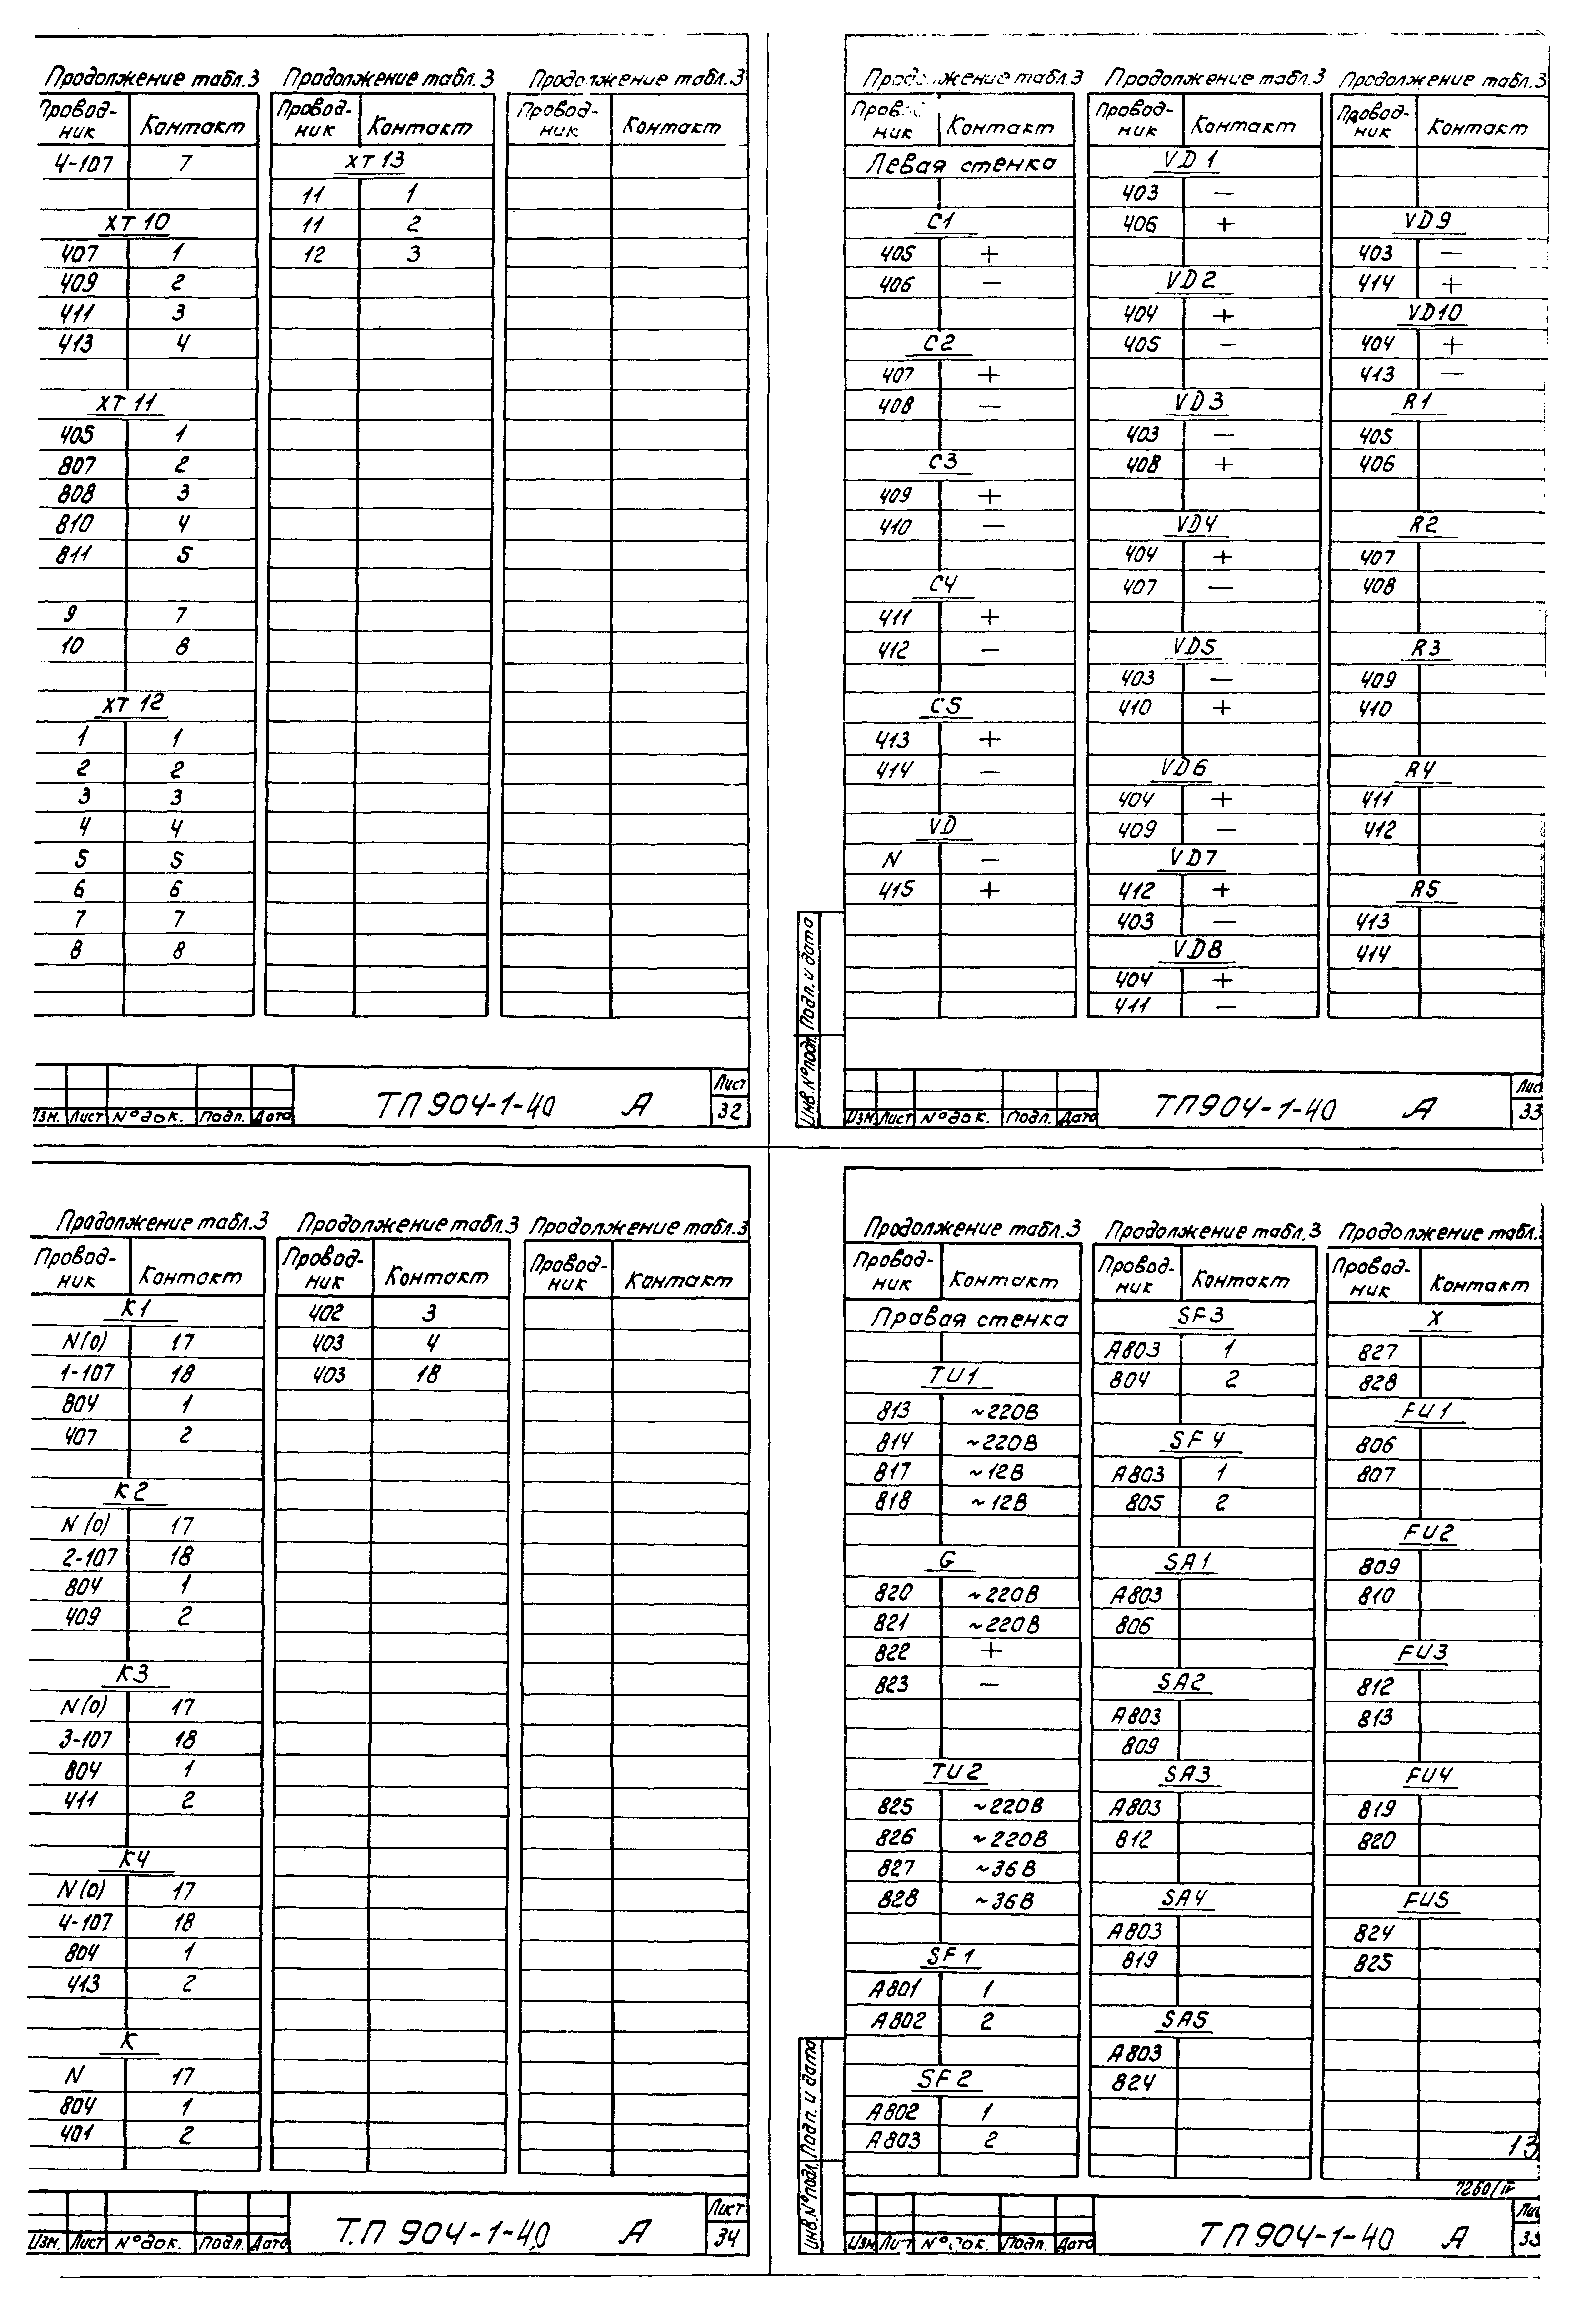 Продолжение табл.3
Провод-
ник Контакт
4-107 7
XT 10
407 1
409 2
411 3
413 4
XT 11
405 1
807 2
808 3
810 4
811 5
9 7
10 8
XT 12
1 1
2 2
3 3
4 4
5 5
6 6
7 7
8 8
Продолжение табл.3
Провод-
ник Контакт
XT 13
11 1
11 2
12 3
Продолжение табл.3
Провод-
ник Контакт
Изм. Лист № док. Подл. Дата
ТП 904-1-40 А
Лист
32
Продолжение табл.3
Провод-
ник Контакт
Левая стенка
C1
405 +
406 –
C2
407 +
408 –
C3
409 +
410 –
C4
411 +
412 –
C5
413 +
414 –
VD
N –
415 +
Продолжение табл.3
Провод-
ник Контакт
VD 1
403 –
406 +
VD2
404 +
405 –
VD3
403 –
408 +
VD4
404 +
407 –
VD5
403 –
410 +
VD6
404 +
409 –
VD7
412 +
403 –
VD8
404 +
411 –
Продолжение табл.3
Провод-
ник Контакт
VD9
403 –
414 +
VD10
404 +
413 –
R1
405
406
R2
407
408
R3
409
410
R4
411
412
R5
413
414
Инв. № подл. Подл. и дата
Изм Лист № док. Подл. Дата
ТП 904-1-40 А
Лис
33
Продолжение табл.3
Провод-
ник Контакт
K1
N(0) 17
1-107 18
804 1
407 2
K2
N(0) 17
2-107 18
804 1
409 2
K3
N(0) 17
3-107 18
804 1
411 2
K4
N(0) 17
4-107 18
804 1
413 2
K
N 17
804 1
401 2
Продолжение табл.3
Провод-
ник Контакт
402 3
403 4
403 18
Продолжение табл.3
Провод-
ник Контакт
Изм. Лист № док. Подл. Дата
Т.П 904-1-40 А
Лист
34
Продолжение табл.3
Провод-
ник Контакт
Правая стенка
TU1
813 ~220В
814 ~220В
817 ~12В
818 ~12В
G
820 ~220В
821 ~220В
822 +
823 –
TU2
825 ~220В
826 ~220В
827 ~36В
828 ~36В
SF1
А801 1
А802 2
SF2
А802 1
А803 2
Продолжение табл.3
Провод-
ник Контакт
SF3
А803 1
804 2
SF4
А803 1
805 2
SA1
А803
806
SA2
А803
809
SA3
А803
812
SA4
А803
819
SA5
А803
824
Продолжение табл.
Провод-
ник Контакт
X
827
828
FU1
806
807
FU2
809
810
FU3
812
813
FU4
819
820
FU5
824
825
13
7260/IV
Инв. № подл. Подл. и дата
Изм Лист № док. Подл. Дата
ТП 904-1-40 А
Лис
35